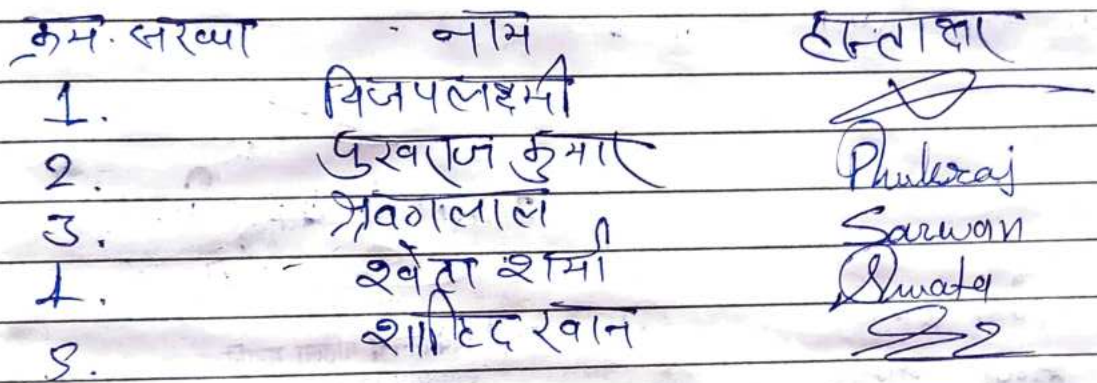 क्रम. संख्या नाम हस्ताक्षर
1. विजयलक्ष्मी
2. पुखराज कुमार Phukraj
3. श्रवणलाल Sarwan
4. श्वेता शर्मा Shwata
5. शाहिद खान